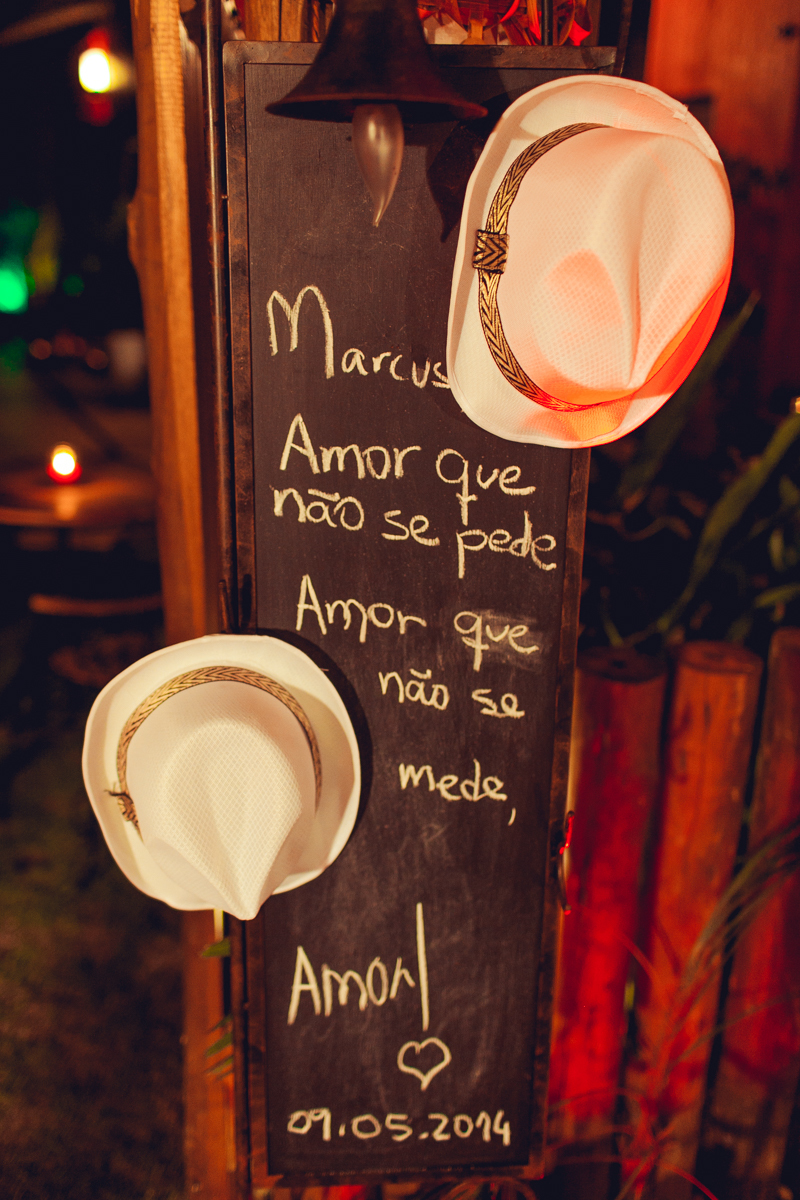 Marcus
Amor que
não se pede
Amor que
não se
mede,
Amor
09.05.2014